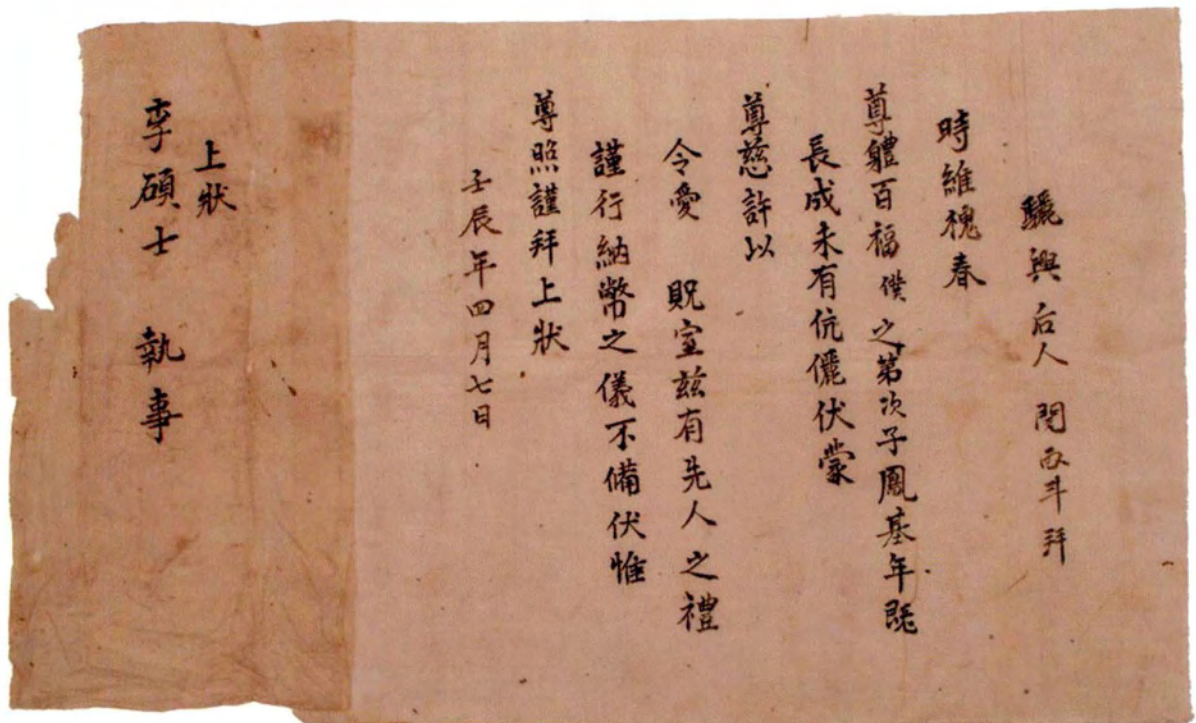 驪興后人 閔斗拜
時維槐春
尊軆百福僕之第次子鳳基年旣
長成未有伉儷伏蒙
尊慈許以
令愛 貺室玆有先人之禮
謹行納幣之儀不備伏惟
尊照謹拜上狀
壬辰年四月七日
上狀
李碩士 執事